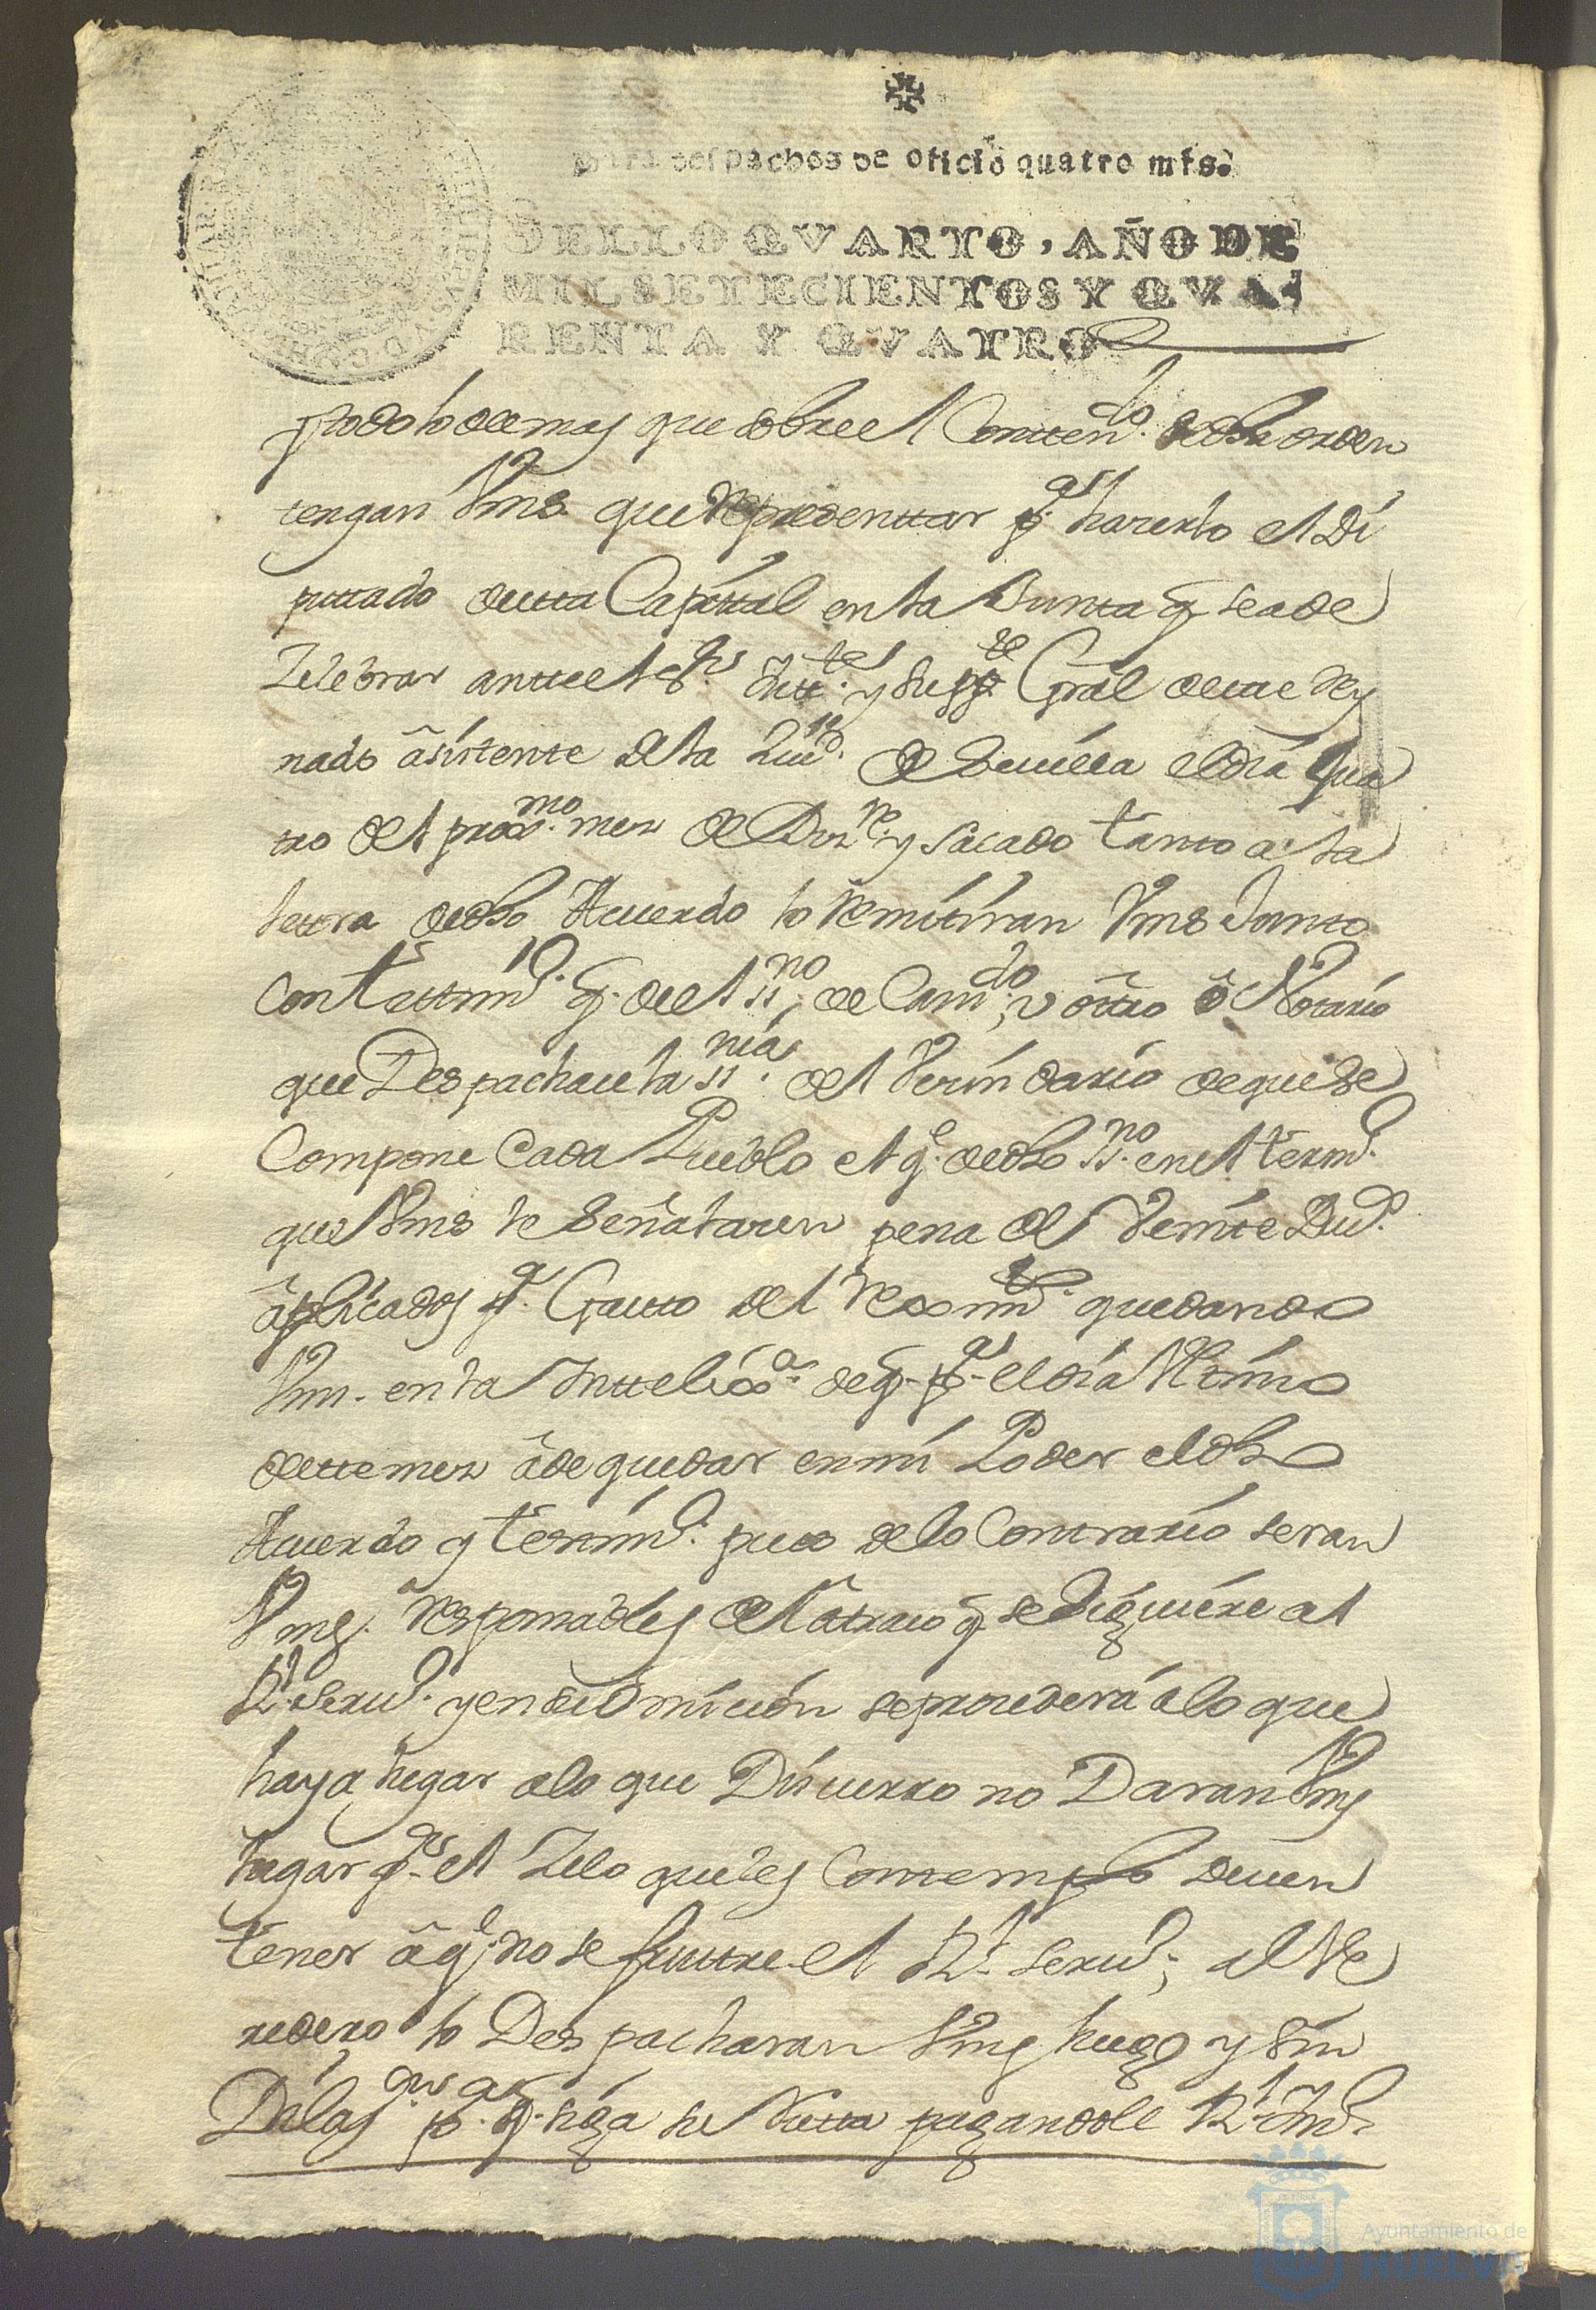 Para despachos de oficio quatro mrs.
SELLO QVARTO, AÑO DE
MIL SETECIENTOS Y QVA
RENTA Y QVATRO
y todo lo demas que sobre el Conten.do de dha orden
tengan Vms que Representar p.a hacerlo el Di
puttado de esta Capital en la Junta q se a de
Zelebrar antte el s.or Intt.te y Gral de este Rey
nado asistente de la Ziu.d de Sevilla el dia qua
tro del prox.mo mes de Diz.re y sacado tanto a la
letra de dho Acuerdo lo Remitiran Vms Junto
Con testtim.o q. de el ss.no de Cavi.do, v otro o Notario
que Despachare la ss.nia del Vecindario de que se
Compone Cada Pueblo el q.e de dho ss.no en el term.o
que Vms le señalaren pena de Veinte Du.s
aplicados p.a Gasto del Rexim.to quedando
Vms. en la Inttelix.a de q. p.a el dia Vltimo
de este mes a de quedar en mi Poder el dho
Acuerdo y testim.o pues de lo Contrario seran
Vms. Responsables del atraso q se siguiere al
R.l Serv.o y en su omision se procedera a lo que
haya lugar a lo que Discurro no Daran Vms
lugar p.r el Zelo que les Contemplo deven
tener a q.e no se frustre el R.l Serv.o; al Ve
redero lo Despacharan Vms luego y sin
Dilaz.on p.a q. siga su Vereda pagandole R.s
Ayuntamiento de
HUELVA